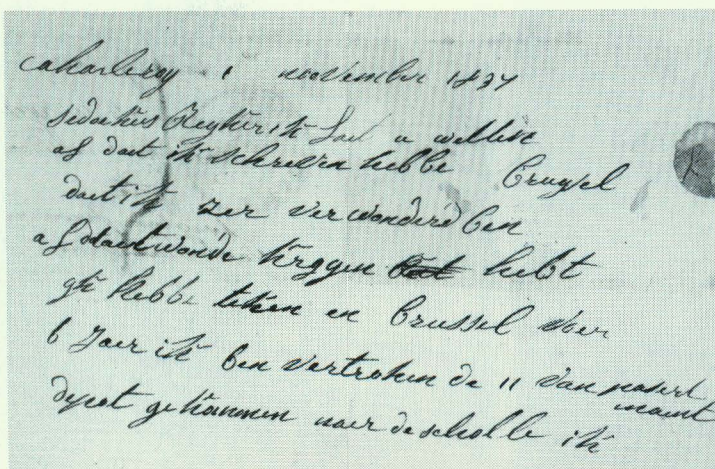 Caharleroy 1 november 1837
sedertius Reghter ik laet u wetten
as dat ik schreven hebbe Brussel
dat ik zer verwonderd ben
as dantwoorde krggen hebt
gk hebbe teken en Brussel voer
6 Jaer ik ben vertroken de 11 van
maent
depot gekommen naer de scholle ik